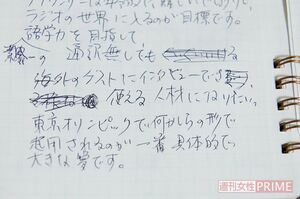 ラジオの世界に入るのが目標です。
語学力を目指して
世界一の 通訳無しでも
海外のゲストにインタビューでき
使える 人材になりたい。
東京オリンピックで何かしらの形で
起用されるのが一番具体的で
大きな夢です。
週刊女性PRIME